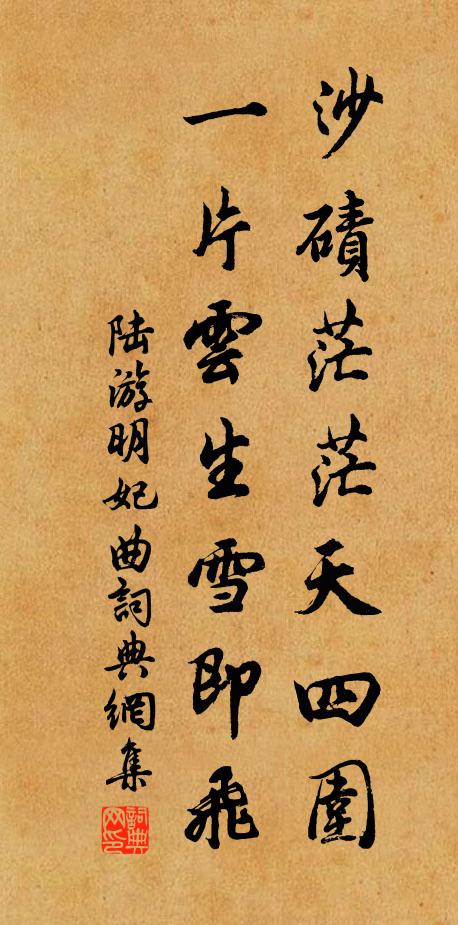 沙磧茫茫天四圍
一片雲生雪即飛
陆游明妃曲詞典網集
詞典网印